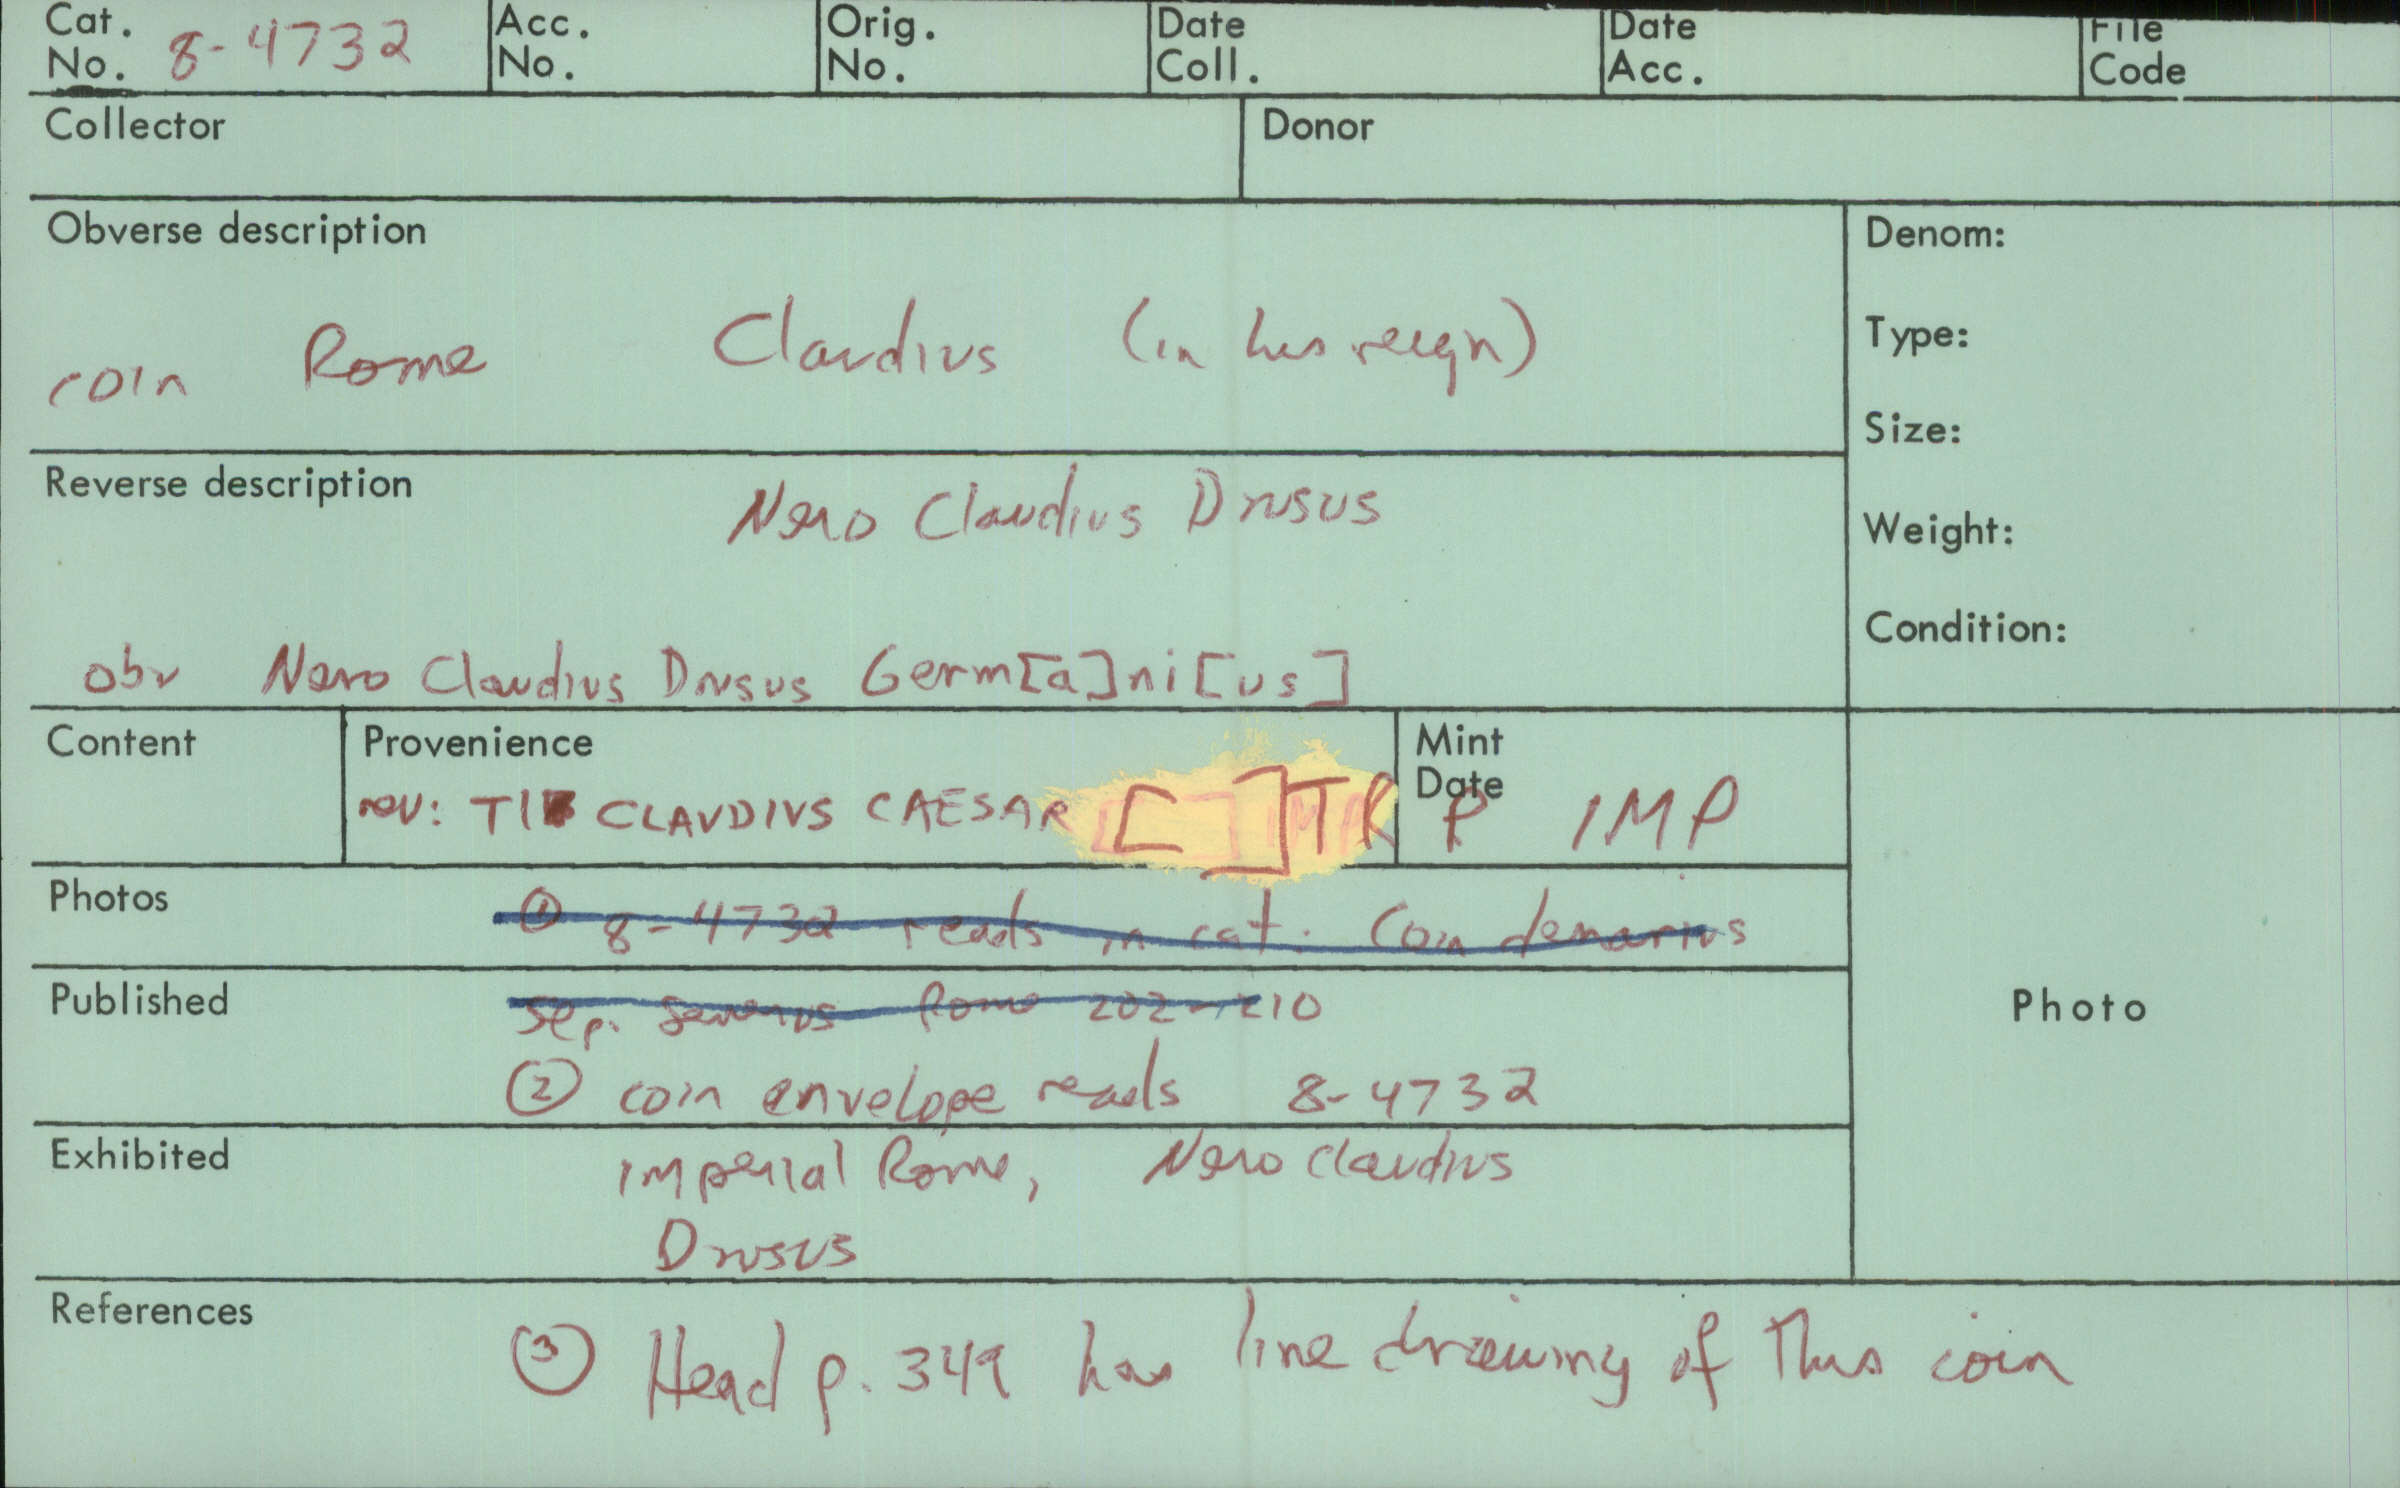 Cat. No. 8-4732 Acc. No. Orig. No. Date Coll. Date Acc. File Code
Collector Donor
Obverse description Denom:
coin Rome Claudius (in his reign) Type:
Size:
Reverse description Nero Claudius Drusus
Weight:
Condition:
obv Nero Claudius Drusus Germ[a]ni[us]
Content Provenience Mint Date
rev: TI CLAVDIVS CAESAR [ ]TR P IMP
Photos ① 8-4732 reads in cat. Coin denarius
Published Sep. Severus Rome 202-210
② coin envelope reads 8-4732
Photo
Exhibited Imperial Rome, Nero Claudius
Drusus
References
③ Head p. 349 has line drawing of this coin